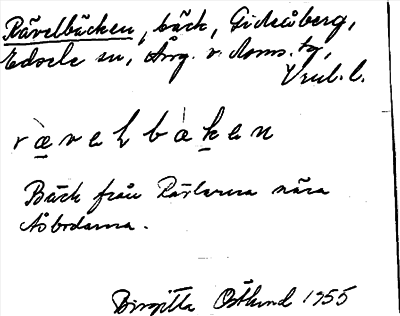 Rävelbäcken, bäck, Gideåberg,
Edsele sn, Ång. v. Roms. tg,
Ÿsub.l.
rævelbàken
Bäck från Rävlarna nära
Åsbodarna.
Birgitta Östlund 1955